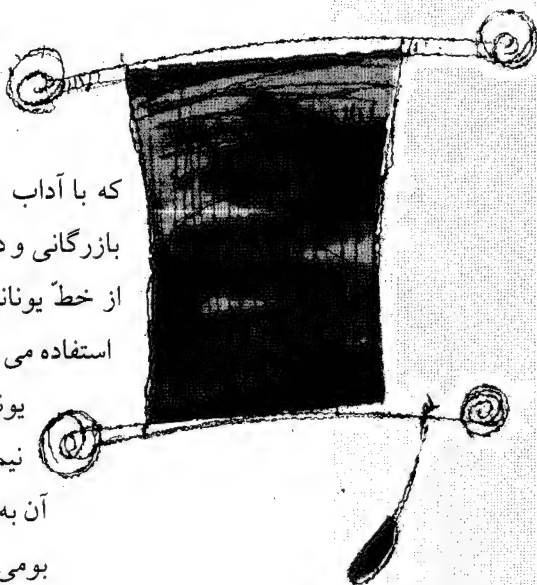 که با آداب
بازرگانی و
از خطّ یونان
استفاده می
آن به
بومی